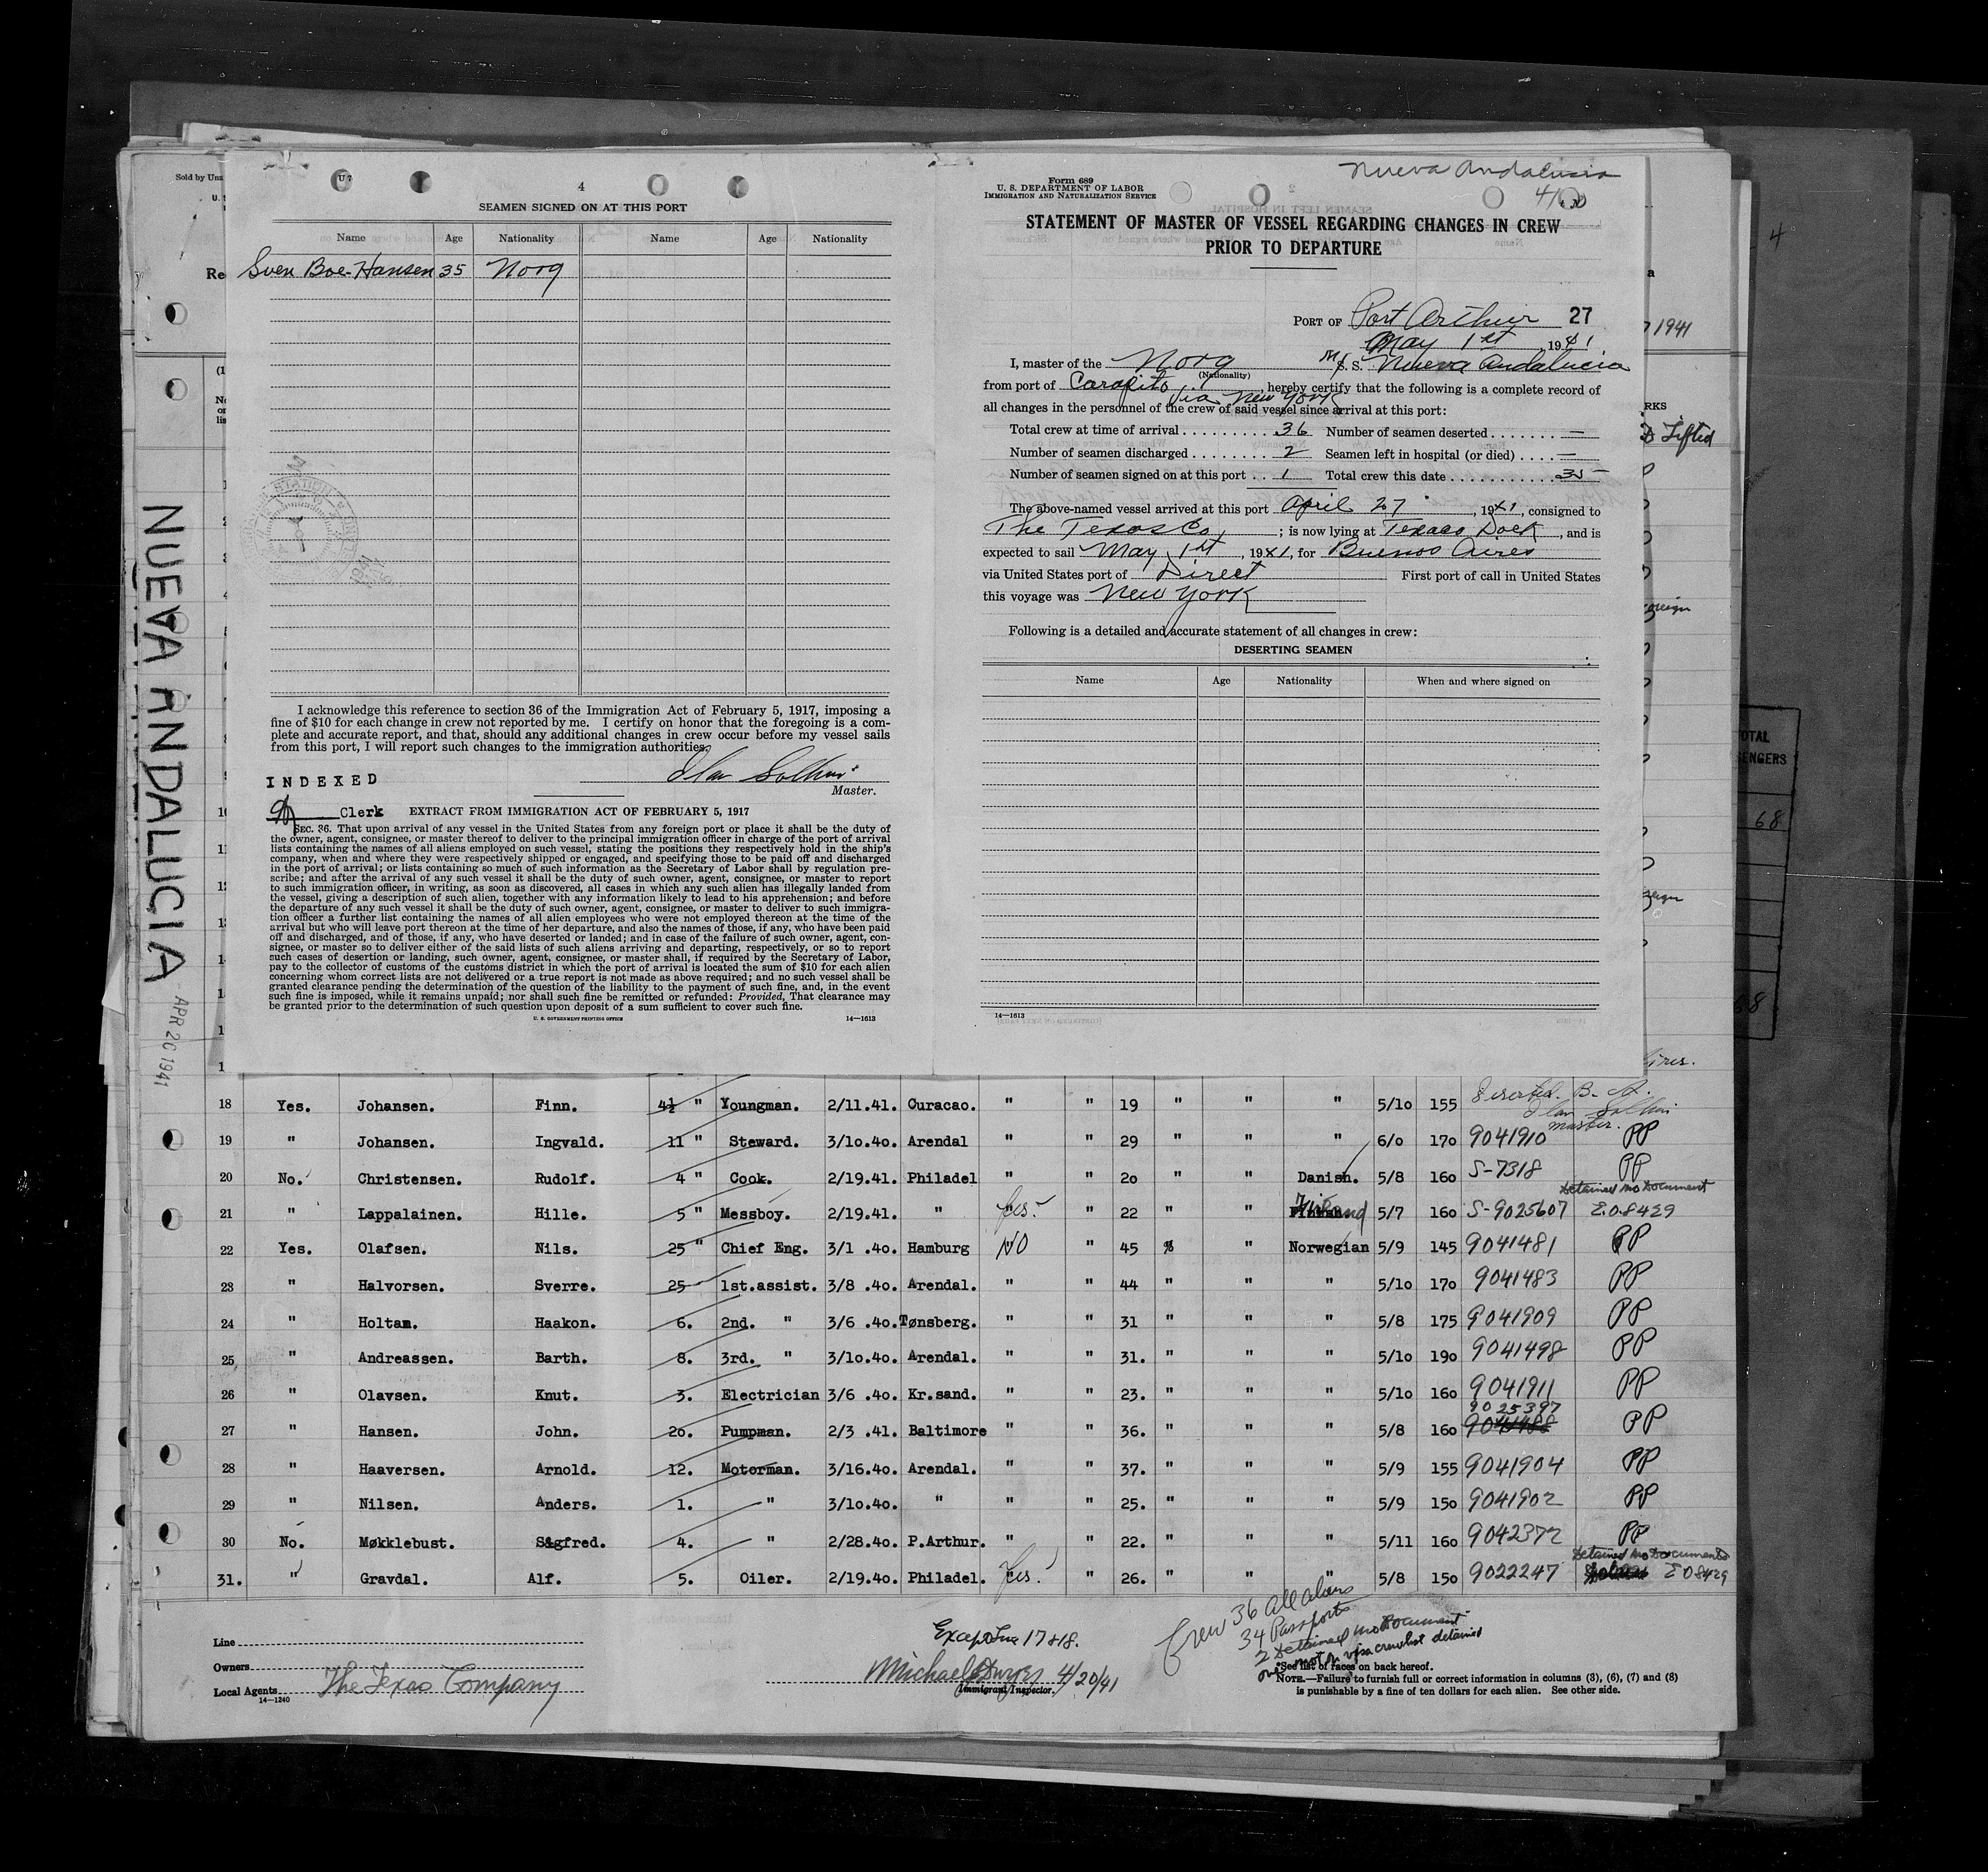 Sold by Una
U. S
Re
NUEVA ANDALUCIA - APR 20 1941
U 7
4
SEAMEN SIGNED ON AT THIS PORT
Name Age Nationality Name Age Nationality
Sven Boe-Hansen 35 Norg
I acknowledge this reference to section 36 of the Immigration Act of February 5, 1917, imposing a
fine of $10 for each change in crew not reported by me. I certify on honor that the foregoing is a com-
plete and accurate report, and that, should any additional changes in crew occur before my vessel sails
from this port, I will report such changes to the immigration authorities.
Master.
INDEXED
Clerk
EXTRACT FROM IMMIGRATION ACT OF FEBRUARY 5, 1917
SEC. 36. That upon arrival of any vessel in the United States from any foreign port or place it shall be the duty of
the owner, agent, consignee, or master thereof to deliver to the principal immigration officer in charge of the port of arrival
lists containing the names of all aliens employed on such vessel, stating the positions they respectively hold in the ship's
company, when and where they were respectively shipped or engaged, and specifying those to be paid off and discharged
in the port of arrival; or lists containing so much of such information as the Secretary of Labor shall by regulation pre-
scribe; and after the arrival of any such vessel it shall be the duty of such owner, agent, consignee, or master to report
to such immigration officer, in writing, as soon as discovered, all cases in which any such alien has illegally landed from
the vessel, giving a description of such alien, together with any information likely to lead to his apprehension; and before
the departure of any such vessel it shall be the duty of such owner, agent, consignee, or master to deliver to such immigra-
tion officer a further list containing the names of all alien employees who were not employed thereon at the time of the
arrival but who will leave port thereon at the time of her departure, and also the names of those, if any, who have been paid
off and discharged, and of those, if any, who have deserted or landed; and in case of the failure of such owner, agent, con-
signee, or master so to deliver either of the said lists of such aliens arriving and departing, respectively, or so to report
such cases of desertion or landing, such owner, agent, consignee, or master shall, if required by the Secretary of Labor,
pay to the collector of customs of the customs district in which the port of arrival is located the sum of $10 for each alien
concerning whom correct lists are not delivered or a true report is not made as above required; and no such vessel shall be
granted clearance pending the determination of the question of the liability to the payment of such fine, and, in the event
such fine is imposed, while it remains unpaid; nor shall such fine be remitted or refunded: Provided, That clearance may
be granted prior to the determination of such question upon deposit of a sum sufficient to cover such fine.
U. S. GOVERNMENT PRINTING OFFICE 14—1613
Nueva Andalucia
Form 689
U. S. DEPARTMENT OF LABOR
IMMIGRATION AND NATURALIZATION SERVICE
STATEMENT OF MASTER OF VESSEL REGARDING CHANGES IN CREW
PRIOR TO DEPARTURE
PORT OF Port Arthur 27
May 1st, 1941
I, master of the Norg M/S. S. Nueva Andalucia
(Nationality)
from port of Carapito via New York, hereby certify that the following is a complete record of
all changes in the personnel of the crew of said vessel since arrival at this port:
Total crew at time of arrival 36 Number of seamen deserted —
Number of seamen discharged 2 Seamen left in hospital (or died) —
Number of seamen signed on at this port 1 Total crew this date 35
The above-named vessel arrived at this port April 27, 1941, consigned to
The Texas Co.; is now lying at Texaco Dock, and is
expected to sail May 1st, 1941, for Buenos Aires
via United States port of Direct First port of call in United States
this voyage was New York
Following is a detailed and accurate statement of all changes in crew:
DESERTING SEAMEN
Name Age Nationality When and where signed on
14—1613
1941
RKS
Lifted
4
OTAL
ENGERS
68
68
18 Yes. Johansen. Finn. 4½ " Youngman. 2/11.41. Curacao. " " 19 " " " 5/10 155 Deserted. B. A.
master.
19 " Johansen. Ingvald. 11 " Steward. 3/10.40. Arendal " " 29 " " " 6/0 170 9041910 PP
20 No. Christensen. Rudolf. 4 " Cook. 2/19.41. Philadel " " 20 " " Danish. 5/8 160 S-7318 PP
Detained No Document
21 " Lappalainen. Hille. 5 " Messboy. 2/19.41. " Yes. " 22 " " Finland 5/7 160 S-9025607 E.O.8429
22 Yes. Olafsen. Nils. 25 " Chief Eng. 3/1 .40. Hamburg NO " 45 " " Norwegian 5/9 145 9041481 PP
23 " Halvorsen. Sverre. 25 1st.assist. 3/8 .40. Arendal. " " 44 " " " 5/10 170 9041483 PP
24 " Holtam. Haakon. 6. 2nd. " 3/6 .40. Tønsberg. " " 31 " " " 5/8 175 9041909 PP
25 " Andreassen. Barth. 8. 3rd. " 3/10.40. Arendal. " " 31. " " " 5/10 190 9041498 PP
26 " Olavsen. Knut. 3. Electrician 3/6 .40. Kr.sand. " " 23. " " " 5/10 160 9041911 PP
9025397
27 " Hansen. John. 20. Pumpman. 2/3 .41. Baltimore " " 36. " " " 5/8 160 PP
28 " Haaversen. Arnold. 12. Motorman. 3/16.40. Arendal. " " 37. " " " 5/9 155 9041904 PP
29 " Nilsen. Anders. 1. " 3/10.40. " " " 25. " " " 5/9 150 9041902 PP
30 No. Møkklebust. Sigfred. 4. " 2/28.40. P.Arthur. " " 22. " " " 5/11 160 9042372 PP
Detained No Documents
31. " Gravdal. Alf. 5. Oiler. 2/19.40. Philadel. Yes. " 26. " " " 5/8 150 9022247 E O 8429
Line
Owners
Local Agents The Texas Company
14—1240
Except Line 17 & 18.
Michael 4/20/41
Immigrant Inspector.
Crew 36 all aliens
34 Passports
2 Detained no Document
one not on visa crew list detained
*See list of races on back hereof.
NOTE.—Failure to furnish full or correct information in columns (3), (6), (7) and (8)
is punishable by a fine of ten dollars for each alien. See other side.